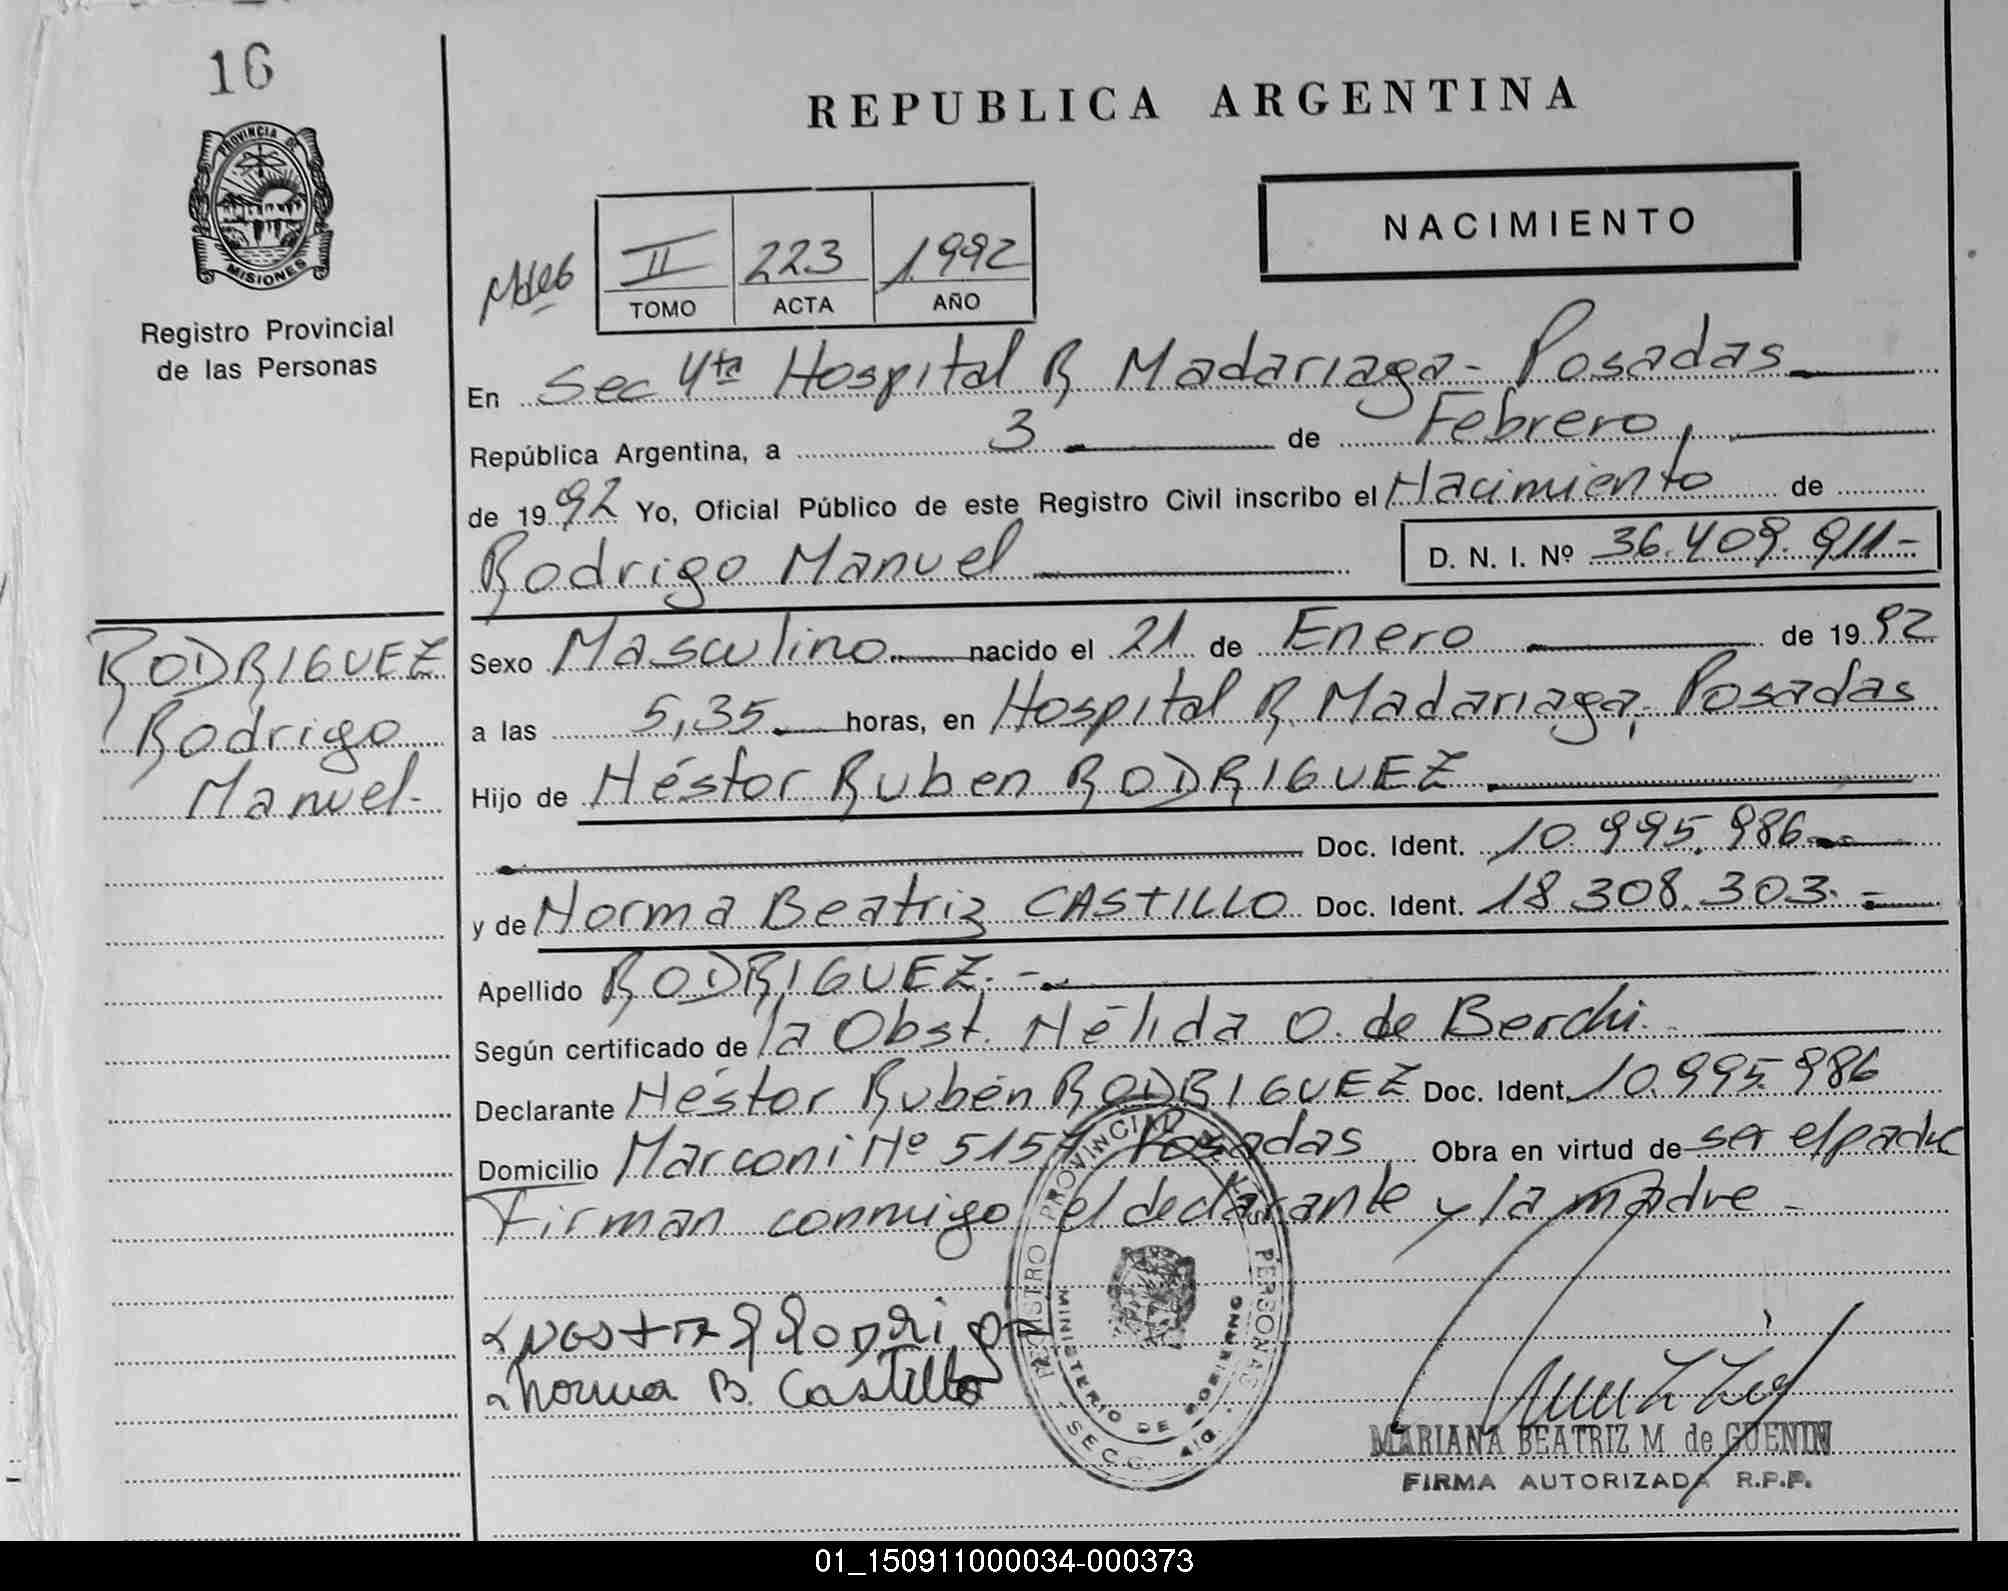 16
PROVINCIA DE
MISIONES
Registro Provincial
de las Personas
REPUBLICA ARGENTINA
NACIMIENTO
II 223 1992
TOMO ACTA AÑO
En Sec 4ta Hospital R Madariaga - Posadas
República Argentina, a 3 de Febrero
de 1992 Yo, Oficial Público de este Registro Civil inscribo el Nacimiento de
Rodrigo Manuel D. N. I. Nº 36.409.911-
RODRIGUEZ
Rodrigo
Manuel-
Sexo Masculino nacido el 21 de Enero de 1992
a las 5,35 horas, en Hospital R. Madariaga, Posadas
Hijo de Héstor Ruben RODRIGUEZ
Doc. Ident. 10.995.986
y de Norma Beatriz CASTILLO Doc. Ident. 18.308.303.-
Apellido RODRIGUEZ.-
Según certificado de la Obst. Nélida O. de Berchi.
Declarante Héstor Rubén RODRIGUEZ Doc. Ident. 10.995.986
Domicilio Marconi Nº 5157 Posadas Obra en virtud de ser el padre
Firman conmigo el declarante y la madre -
Norma B. Castillo
REGISTRO PROVINCIAL DE LAS PERSONAS
MINISTERIO DE GOBIERNO
SECC. 4ta.
MARIANA BEATRIZ M. de GUENIN
FIRMA AUTORIZADA R.P.P.
01_150911000034-000373